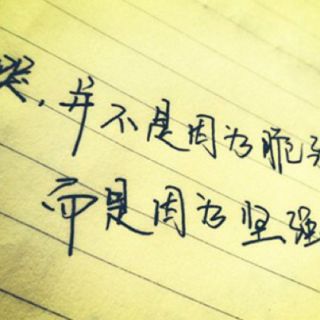 哭,并不是因为脆弱
而是因为坚强